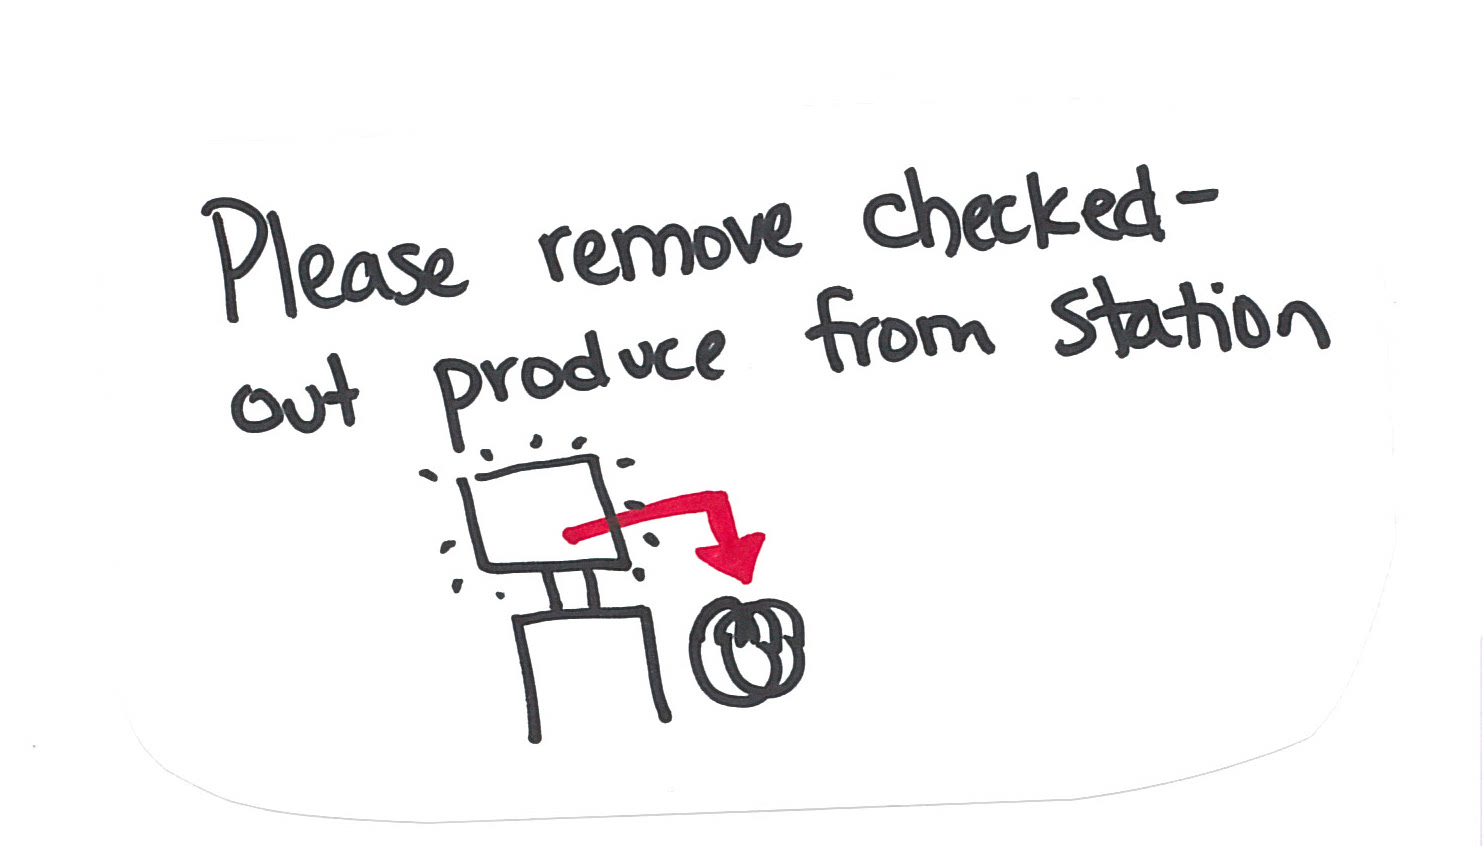 Please remove checked-
out produce from station